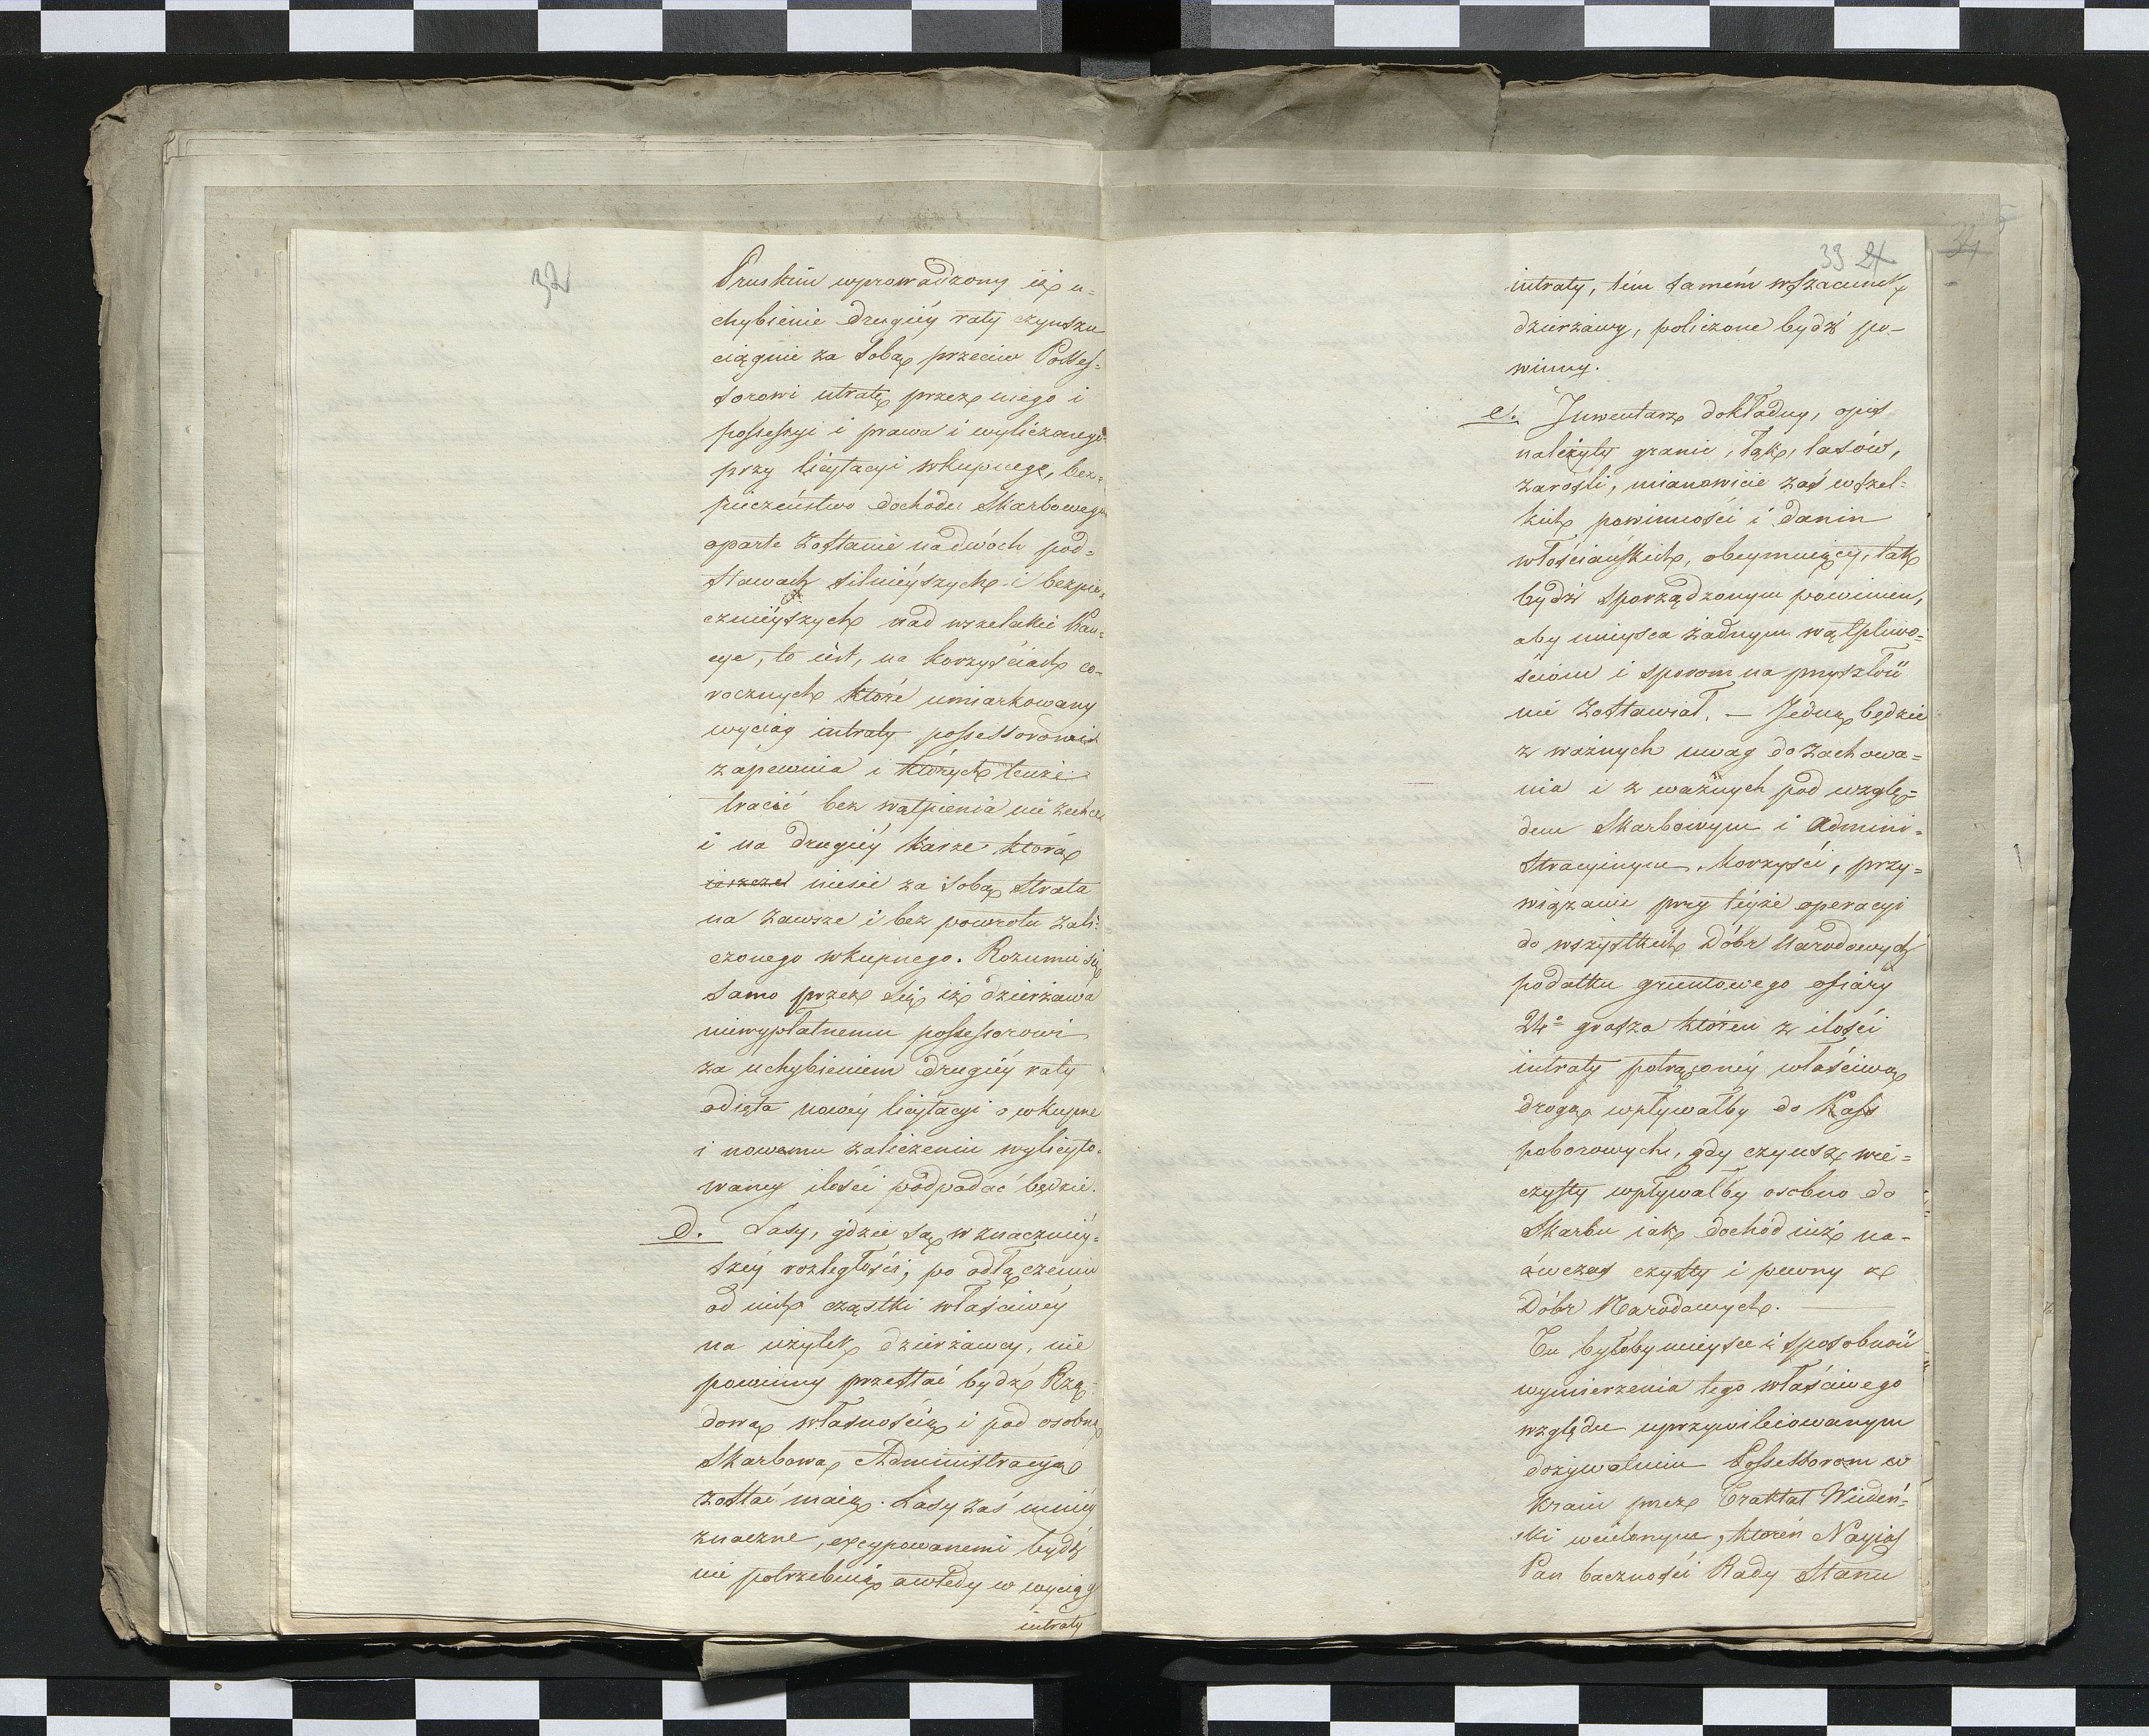 32
Pruskim wprowadzony iż u=
chybienie drugiéy raty czynszu
ciągnie za sobą przeciw Posses=
sorowi utratę przez niego i
possessyi i prawa i wyliczonego
przy licytacyi wkupnego, bez=
pieczeństwo dochodu Skarbowego
oparte zostanie na dwóch pod=
stawach silnieyszych i bezpie=
cznieyszych nad wszelakie Kau=
cye, to iest, na korzyściach co=
rocznych które umiarkowany
wyciąg intraty possessorowi
zapewnia i których tenże
tracić bez wątpienia nie zechce
i na drugiéy karze którą
ieszcze niesie za sobą strata
na zawsze i bez powrotu zali=
czonego wkupnego. Rozumie się
samo przez się iż dzierżawa
niewypłatnemu possessorowi
za uchybieniem drugiéy raty
odięta nowéy licytacyi o wkupne
i nowemu zaliczeniu wylicyto=
waney ilości podpadać będzie.
d. Lasy, gdzie są w znacznié=
széy rozległości, po odłączeniu
od nich cząstki właściwéy
na użytek dzierżawcy, nie
powinny przestać bydź Rzą=
dową własnością i pod osobną
Skarbową Administracyą
zostać maią. Lasy zaś mniéy
znaczne, excypowanemi bydź
nie potrzebuią a wtedy w wyciąg
intraty
33 21
34
intraty, tém samém w szacunek
dzierżawy, policzone bydź po-
winny.
e. Inwentarz dokładny, opis
należyty granic, łąk, lasów,
zarośli, mianowicie zaś wszel=
kich powinności i danin
włościańskich, obeymuiący, tak
bydź sporządzonym powinien,
aby mieysca żadnym wątpliwo=
ściom i sporom na przyszłość
nie zostawiał. — Jedną będzie
z ważnych uwag do zachowa=
nia i z ważnych pod wzglę=
dem Skarbowym i Admini=
stracyinym korzyści, przy=
wiązanie przy téyże operacyi
do wszystkich Dóbr Narodowych
podatku gruntowego ofiary
24º grosza któren z ilości
intraty potrąconéy właściwą
drogą wpływałby do Kass
poborowych, gdy czynsz wie=
czysty wpływałby osobno do
Skarbu iak dochód iuż na-
ówczas czysty i pewny z
Dóbr Narodowych. —
Tu byłoby mieysce i sposobność
wymierzenia tego właściwego
względu uprzywileiowanym
dożywotnim Possessorom w
kraiu przez Traktat Wiedeń=
ski wcielonym, któren Nayiaś
Pan baczności Rady Stanu